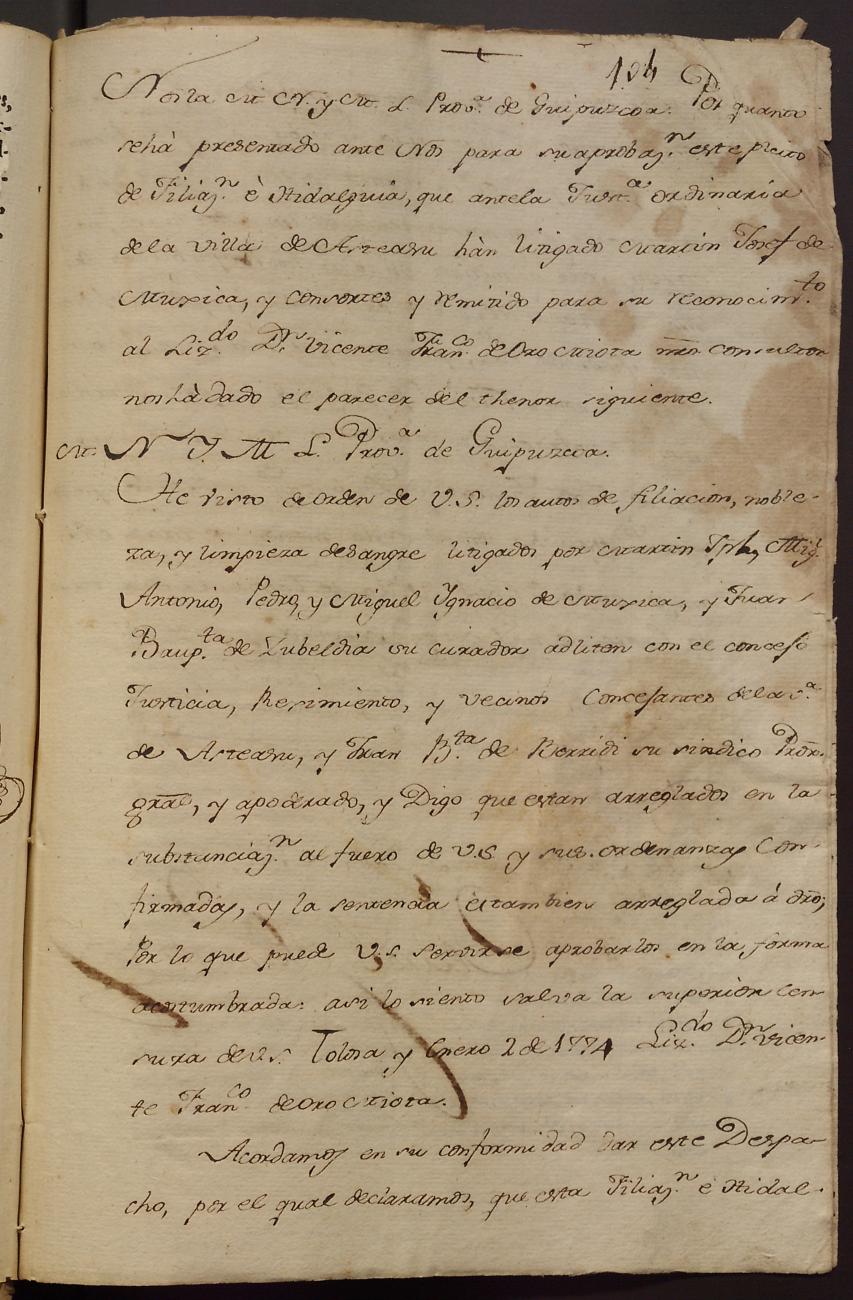 104
Nos la M. N. y M. L. Prov.ª de Guipuzcoa. Por quanto
sehà presentado ante Nos para su aprobaz.n este pleito
de Filiaz.n è Hidalguia, que antela Just.ª ordinaria
de la villa de Asteasu hàn litigado Martin Josef de
Muxica, y consortes y remitido para su reconocim.to
al Liz.do D.n Vicente Fran.co de Oro Miota nr̃o consultor
nos hà dado el parecer del thenor siguiente.
M. N. Y. M. L. Prov.ª de Guipuzcoa.
He visto de orden de V.S. los autos de filiacion, noble-
za, y limpieza de sangre litigados por Martin Jph, Mig.l
Antonio, Pedro, y Miguel Ygnacio de Muxica, y Juan
Baup.ta de Zubeldia su curador adliten con el concejo
Justicia, Rejimiento, y vecinos Concejantes de la v.ª
de Asteasu, y Juan B.ta de Berridi su sindico Pror̃.
gral, y apoderado, y Digo que estan arreglados en la
substanciaz.n al fuero de V.S. y sus ordenanzas Con-
firmadas, y la sentencia es tambien arreglada á dr̃o;
Por lo que puede V.S. servirse aprobarlos en la forma
acostumbrada: asi lo siento salva la superior Cen-
sura de V.S. Tolosa y Enero 2 de 1774 Liz.do D.n Vicen-
te Fran.co de Oro Miota.
Acordamos en su conformidad dar este Despa-
cho, por el qual declaramos, que esta Filiaz.n è Hidal-